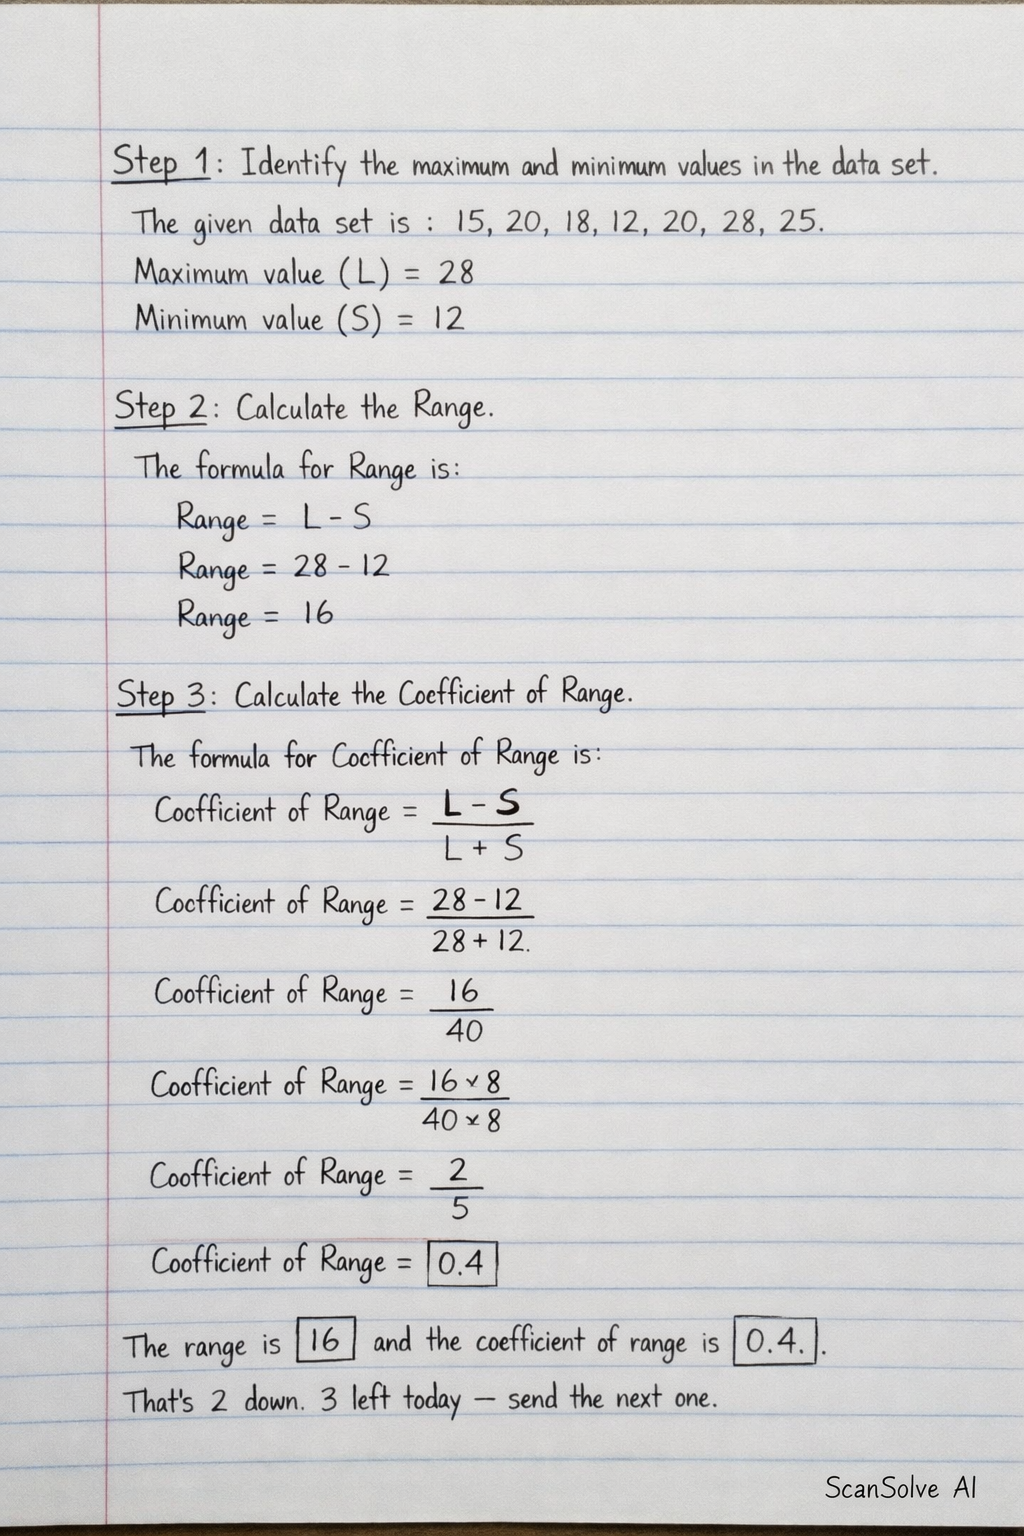 Step 1: Identify the maximum and minimum values in the data set.
The given data set is : 15, 20, 18, 12, 20, 28, 25.
Maximum value (L) = 28
Minimum value (S) = 12
Step 2: Calculate the Range.
The formula for Range is:
Range = L - S
Range = 28 - 12
Range = 16
Step 3: Calculate the Coefficient of Range.
The formula for Cocfficient of Range is:
Cocfficient of Range = L - S
L + S
Cocfficient of Range = 28 - 12
28 + 12.
Coofficient of Range = 16
40
Coofficient of Range = 16 × 8
40 × 8
Coofficient of Range = 2
5
Coofficient of Range = 0.4
The range is 16 and the coefficient of range is 0.4. .
That's 2 down. 3 left today — send the next one.
ScanSolve AI